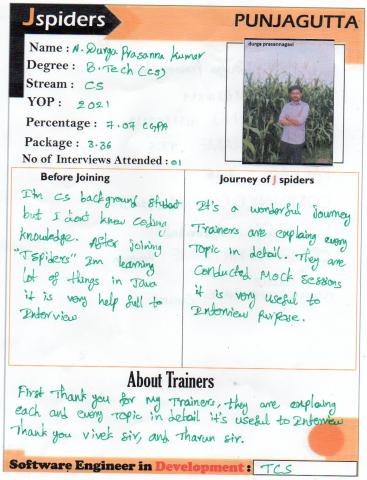 Jspiders
PUNJAGUTTA
Name : A. Durga Prasanna Kumar
Degree : B.Tech (CS)
Stream : CS
YOP : 2021
Percentage : 7.07 CGPA
Package : 3.36
No of Interviews Attended : 01
durga prasannagavi
Before Joining
I'm CS background Student
but I don't know coding
knowledge. After joining
"JSpiders" Im learning
lot of things in Java
it is very help full to
Interview
Journey of J spiders
It's a wonderful journey
Trainers are explaing every
Topic in detail. They are
Conducted Mock Sessions
it is very useful to
Interview Purpose.
About Trainers
First Thank you for my Trainers, they are explaing
each and every Topic in detail it's useful to Interview
Thank you vivek sir, and Tharun sir.
Software Engineer in Development : TCS